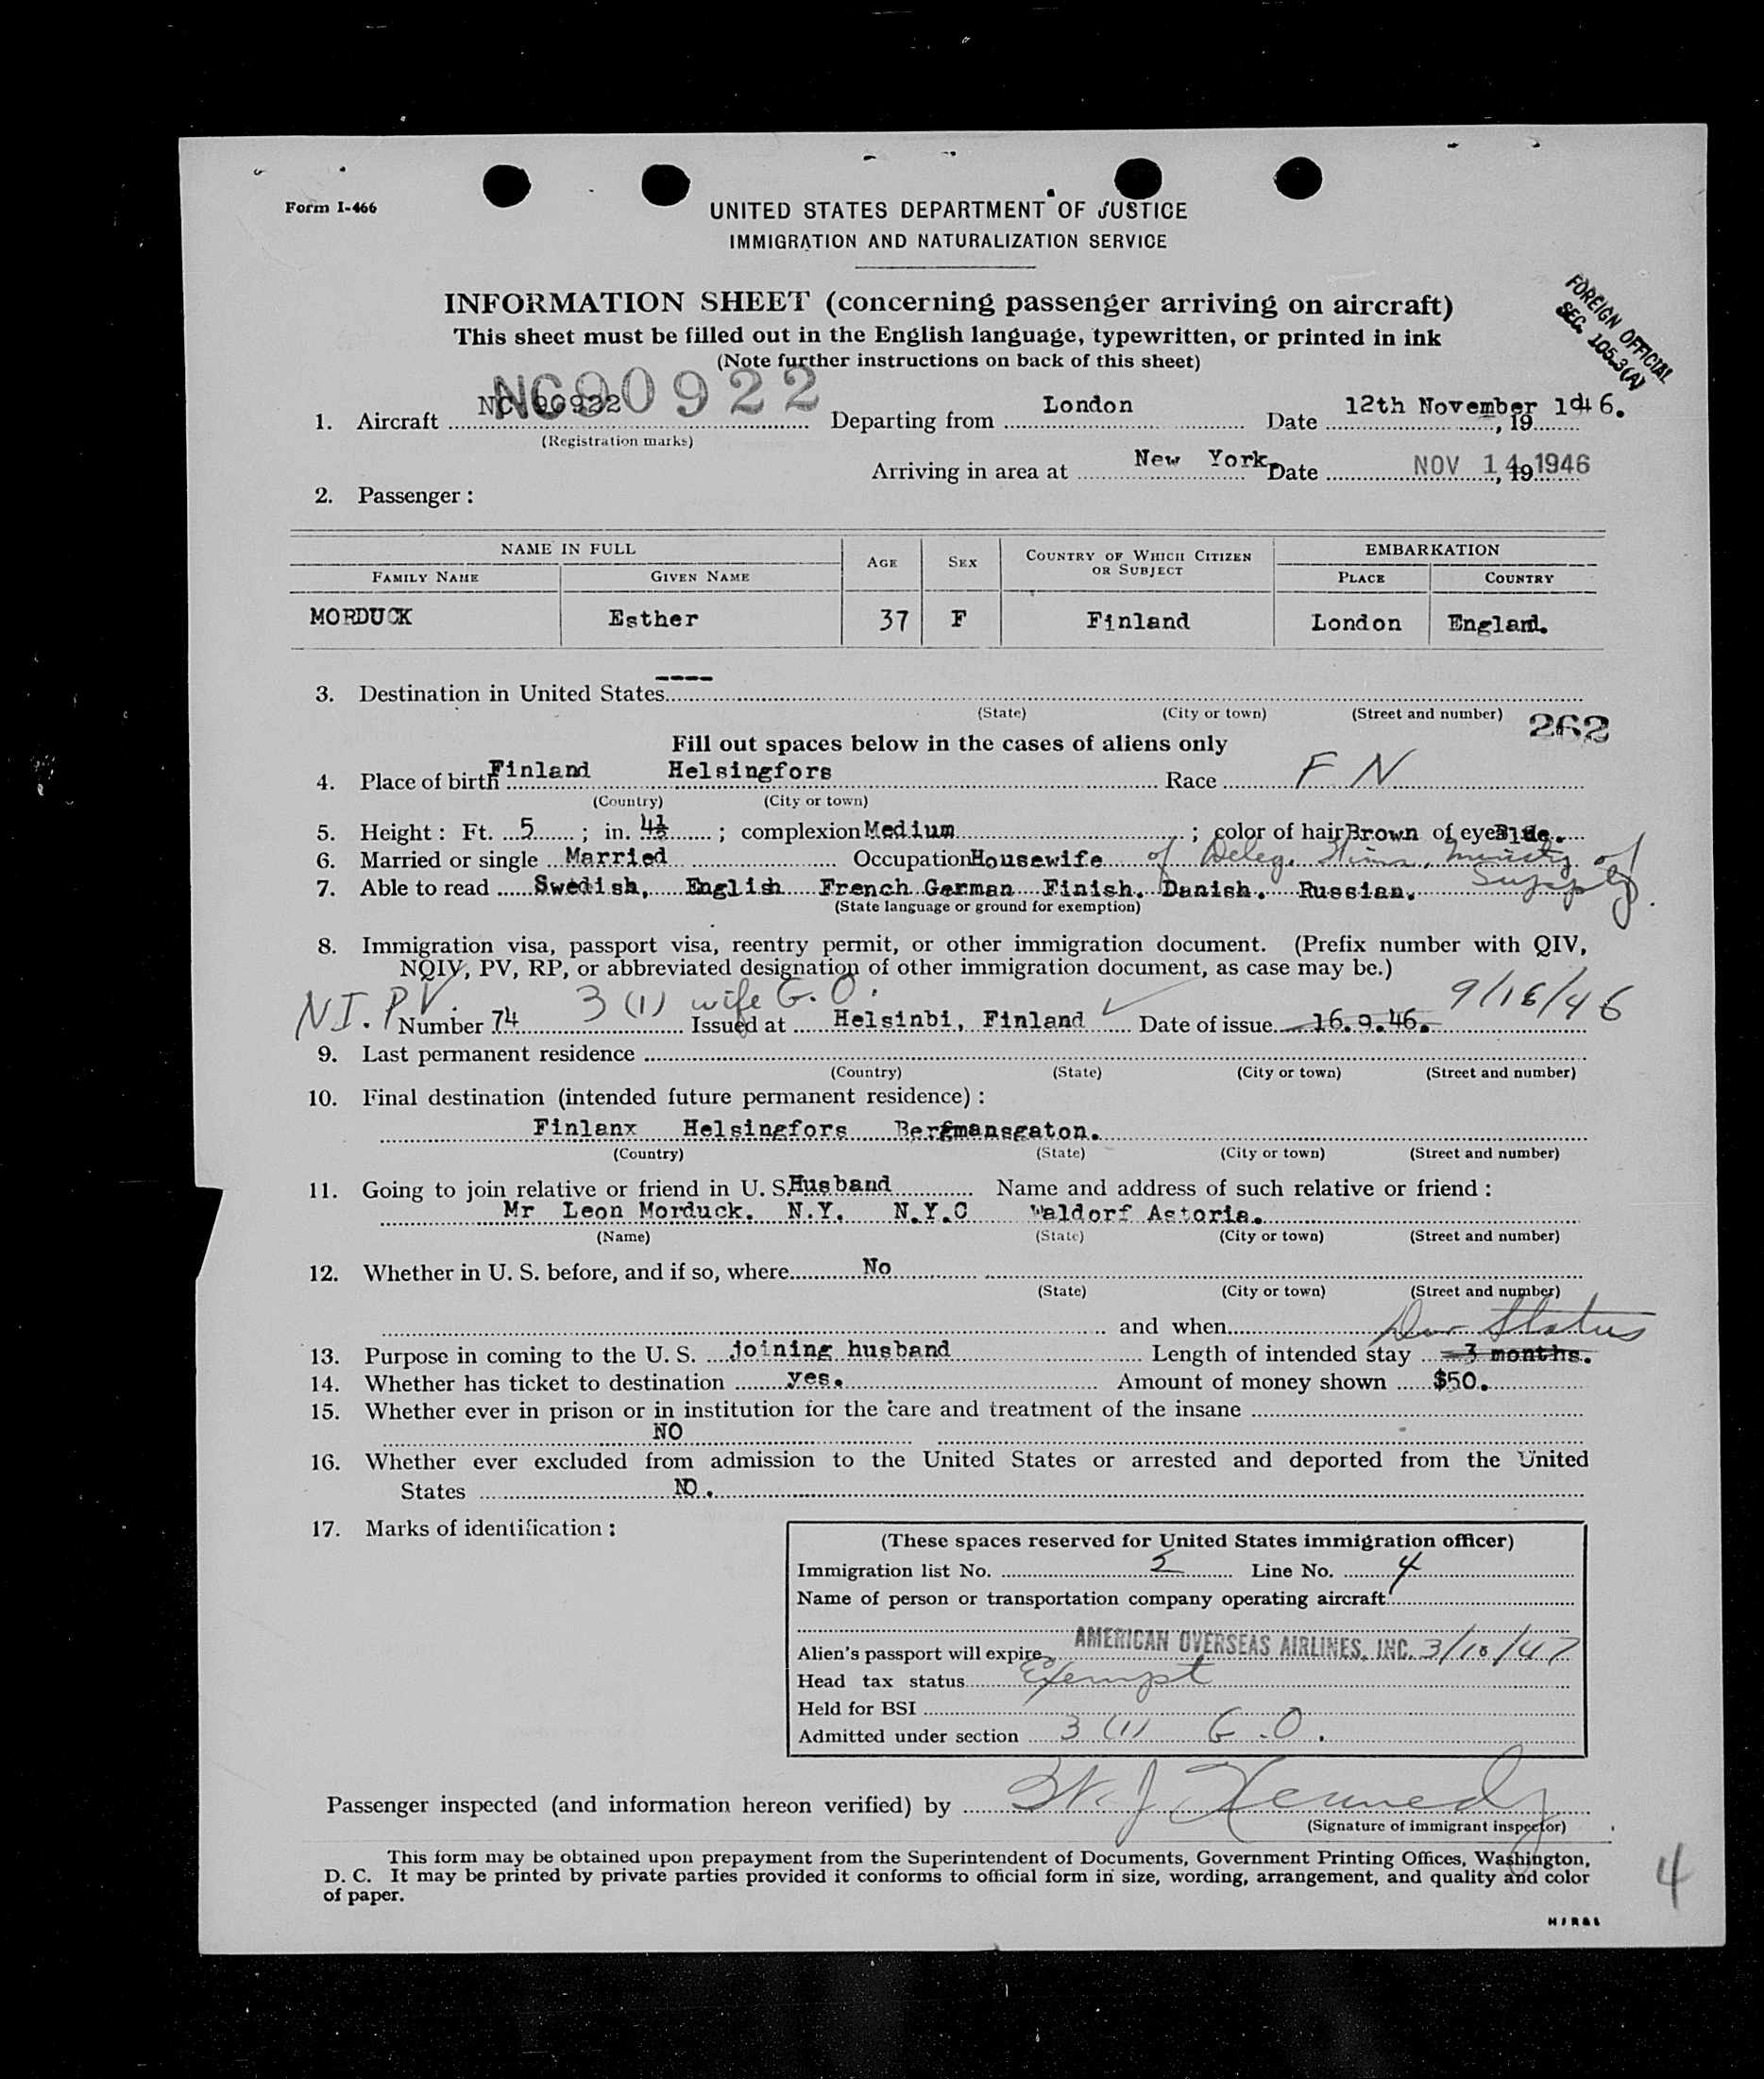 Form I-466
UNITED STATES DEPARTMENT OF JUSTICE
IMMIGRATION AND NATURALIZATION SERVICE
INFORMATION SHEET (concerning passenger arriving on aircraft)
This sheet must be filled out in the English language, typewritten, or printed in ink
(Note further instructions on back of this sheet)
FOREIGN OFFICIAL
SEC. 105.3(A)
NC90922
1. Aircraft NC 90922 Departing from London Date 12th November 1946., 19
(Registration marks)
Arriving in area at New York. Date NOV 14 1946, 19
2. Passenger :
NAME IN FULL AGE SEX COUNTRY OF WHICH CITIZEN OR SUBJECT EMBARKATION
FAMILY NAME GIVEN NAME PLACE COUNTRY
MORDUCK Esther 37 F Finland London England.
3. Destination in United States ----
(State) (City or town) (Street and number)
262
Fill out spaces below in the cases of aliens only
4. Place of birth Finland Helsingfors Race F N
(Country) (City or town)
5. Height : Ft. 5 ; in. 4½ ; complexion Medium ; color of hair Brown of eyes Blue.
6. Married or single Married Occupation Housewife of Deleg. Finn. Ministry of Supply.
7. Able to read Swedish, English French German Finish. Danish. Russian.
(State language or ground for exemption)
8. Immigration visa, passport visa, reentry permit, or other immigration document. (Prefix number with QIV,
NQIV, PV, RP, or abbreviated designation of other immigration document, as case may be.)
N.I.P.V. 3 (1) wife G.O. 9/16/46
Number 74 Issued at Helsinbi, Finland Date of issue 16.9.46.
9. Last permanent residence
(Country) (State) (City or town) (Street and number)
10. Final destination (intended future permanent residence) :
Finlanx Helsingfors Bergmansgaton.
(Country) (State) (City or town) (Street and number)
11. Going to join relative or friend in U. S. Husband Name and address of such relative or friend :
Mr Leon Morduck. N.Y. N.Y.C Waldorf Astoria.
(Name) (State) (City or town) (Street and number)
12. Whether in U. S. before, and if so, where No
(State) (City or town) (Street and number)
and when Dur Status
13. Purpose in coming to the U. S. joining husband Length of intended stay 3 months.
14. Whether has ticket to destination yes. Amount of money shown $50.
15. Whether ever in prison or in institution for the care and treatment of the insane
NO
16. Whether ever excluded from admission to the United States or arrested and deported from the United
States NO.
17. Marks of identification :
(These spaces reserved for United States immigration officer)
Immigration list No. 2 Line No. 4
Name of person or transportation company operating aircraft
AMERICAN OVERSEAS AIRLINES, INC.
Alien's passport will expire 3/10/47
Head tax status Exempt
Held for BSI
Admitted under section 3 (1) G.O.
Passenger inspected (and information hereon verified) by W. J. Kennedy
(Signature of immigrant inspector)
This form may be obtained upon prepayment from the Superintendent of Documents, Government Printing Offices, Washington,
D. C. It may be printed by private parties provided it conforms to official form in size, wording, arrangement, and quality and color
of paper.
4